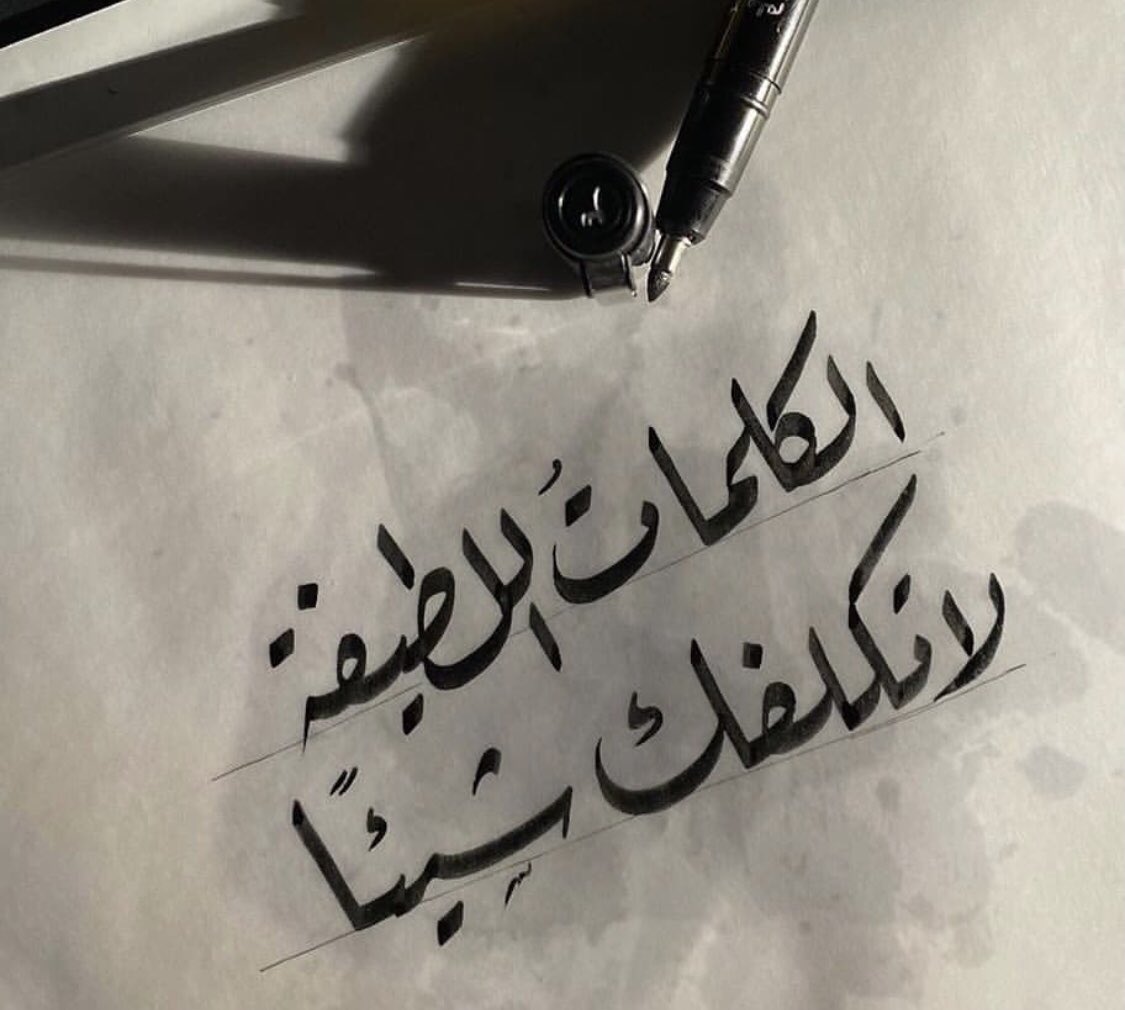 الكلماتُ اللطيفة
لا تكلفك شيئًا